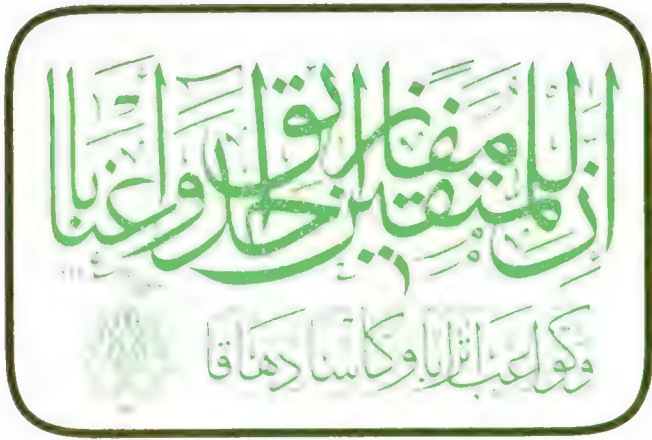 إن للمتقين مفازا حدائق وأعنابا
وكواعب أترابا وكأسا دهاقا